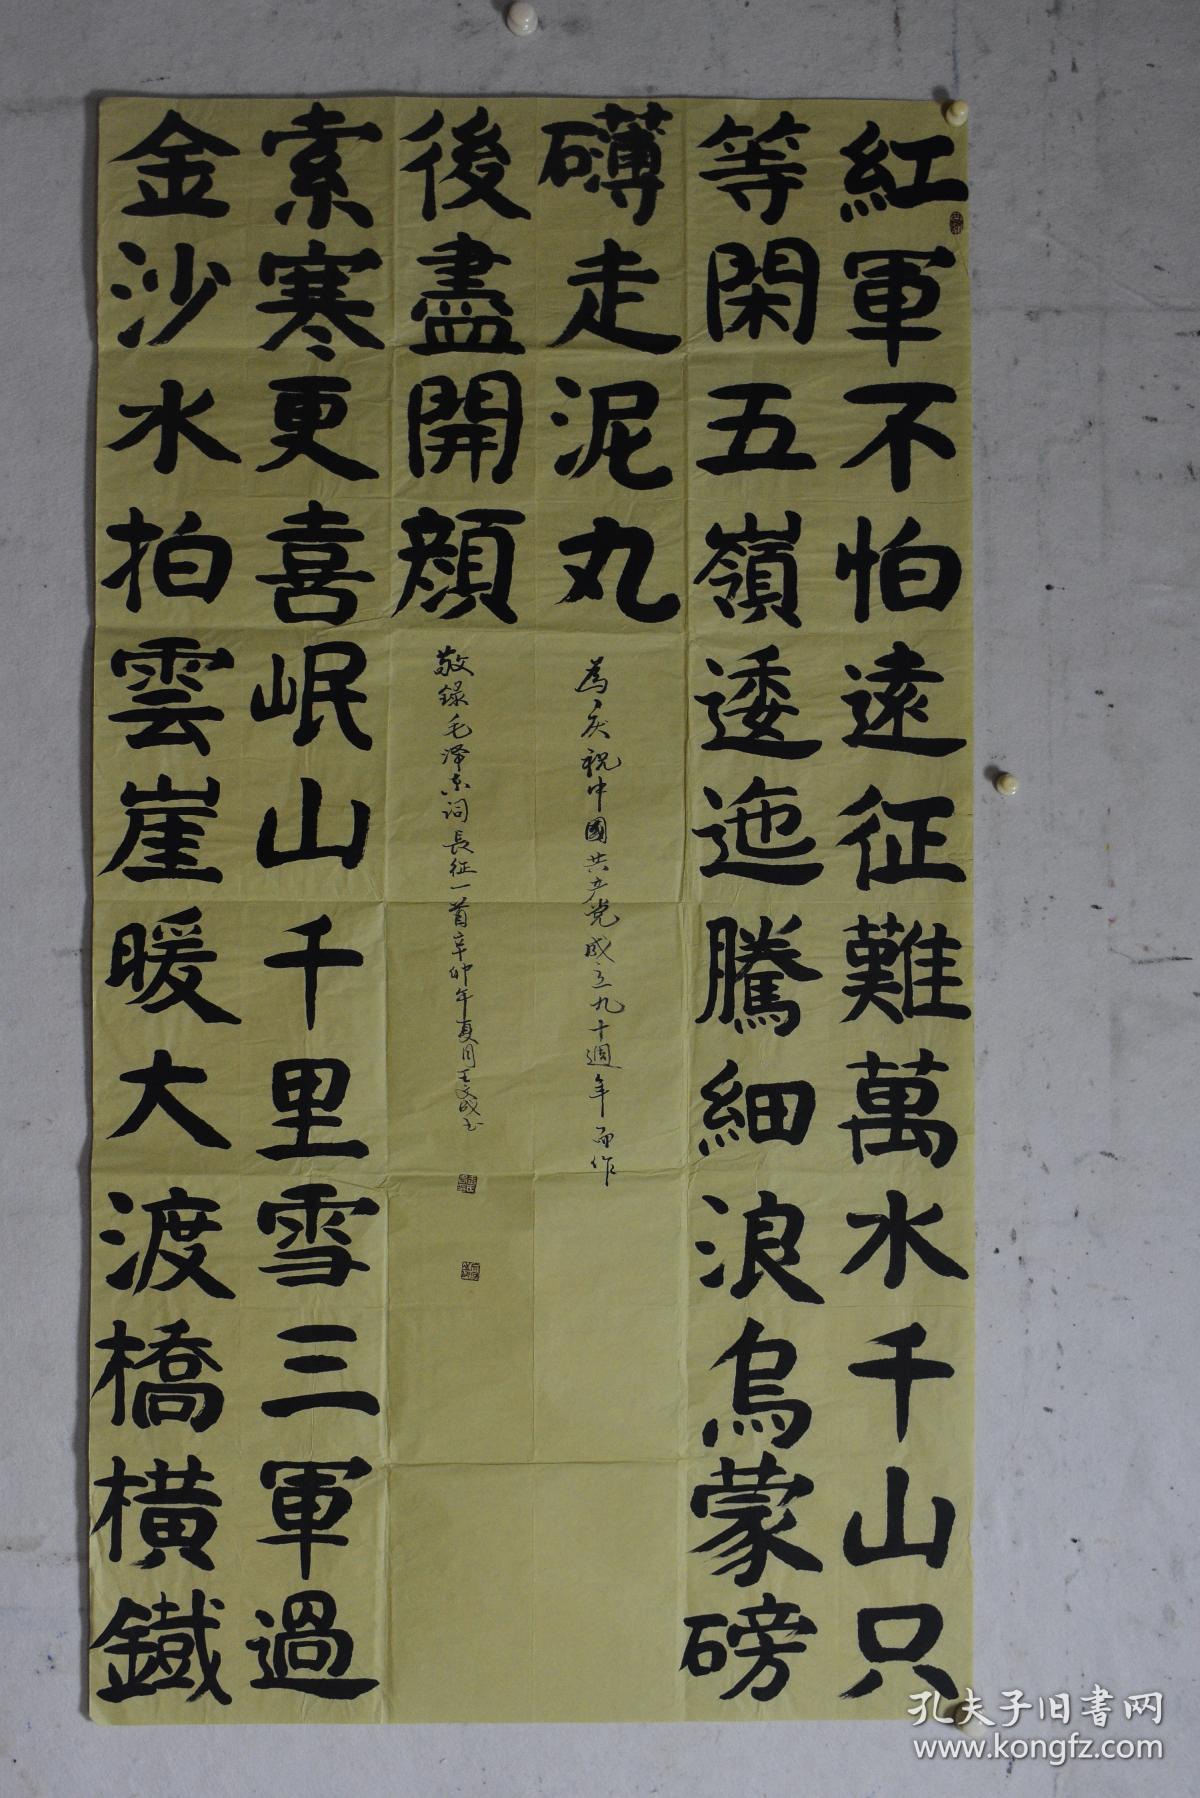 紅軍不怕遠征難萬水千山只
等閑五嶺逶迤騰細浪烏蒙磅
礴走泥丸
為庆祝中國共产党成立九十週年而作
金沙水拍雲崖暖大渡橋橫鐵
索寒更喜岷山千里雪三軍過
後盡開顏
敬録毛泽东词長征一首辛卯年夏月王文成书
孔夫子旧书网
www.kongfz.com